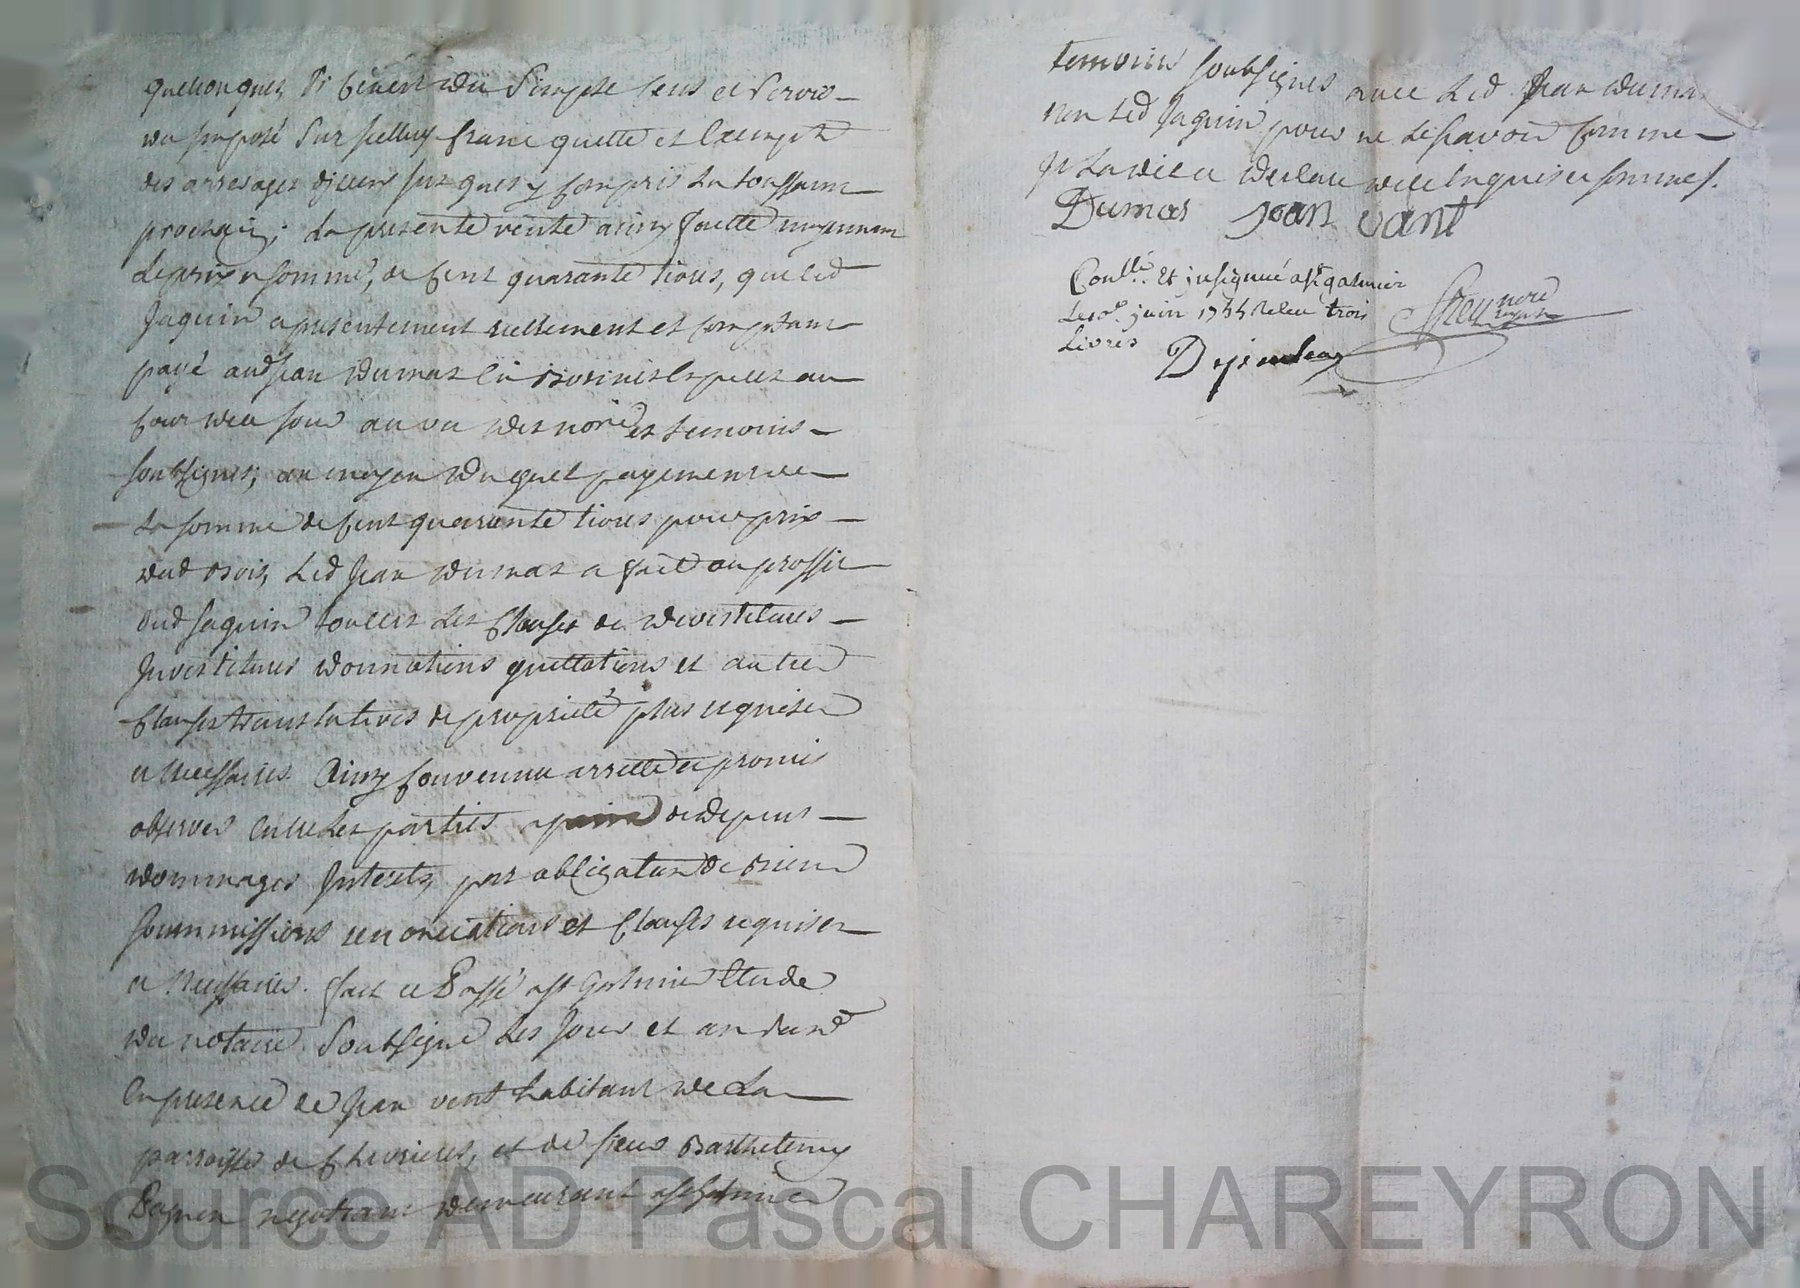 quelconques, si ce n'est du simple cens et servis
du imposé sur icelluy franc quitte et exempt
des arrerages d'iceux jusques y compris la toussaint
prochain; la presente vente ainsy faitte moyennant
le prix et somme, de cent quarante livres, que led
Jaquin a presentement reellement et comptant
payé aud jean Dumas en bonnes especes au
cour de ce jour au vu des nore et temoins
soubsignés; au moyen duquel payement de
la somme de cent quarante livres pour prix
dud bois, led Jean dumas a fait au proffit
dud jaquin touttes les clauses de devestitures
Investitures donnations quittations et autres
clauses translatives de propriété plus requises
et necessaires. Ainsy convenu arretté et promis
observer entre les parties a peine de depens
dommages Interets, par obligation de biens
soummissions renonciations et clauses requises
et necessaires. fait et Passé a st Galmier Etude
du notaire soubsigné les jour et an susd
En presence de jean vant habitant de la
parroisse de chevrieres, et de sieur Barthelemy
negotiant demeurant a st galmier
temoins soubsignés avec led Jean dumas
non led jaquin pour ne le savoir comme
il l'a dit et declaré de ce enquis et sommés.
Dumas jean vant
Conllé. Et insignué a st galmier
le juin 1755 Reseu trois
Livres
nore
royal
Source AD Pascal CHAREYRON